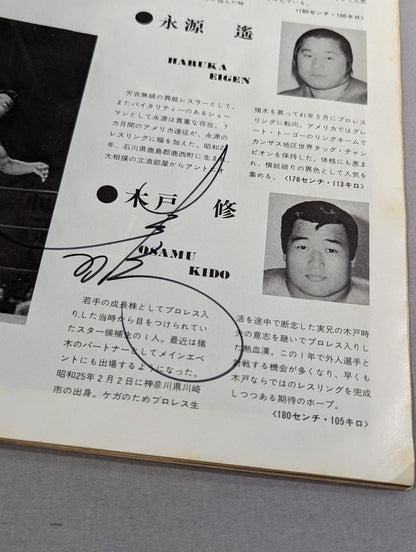 〈180センチ・100キロ〉
●永源 遙
HARUKA
EIGEN
天衣無縫の異能レスラーとして、
またバイタリティーのあるショー
マンとして永源は貴重な存在。7
カ月間のアメリカ遠征が、永源の
レスリングに幅を加えた。昭和2
年、石川県鹿島郡鹿西町に生ま
大相撲の立浪部屋からアントニオ
猪木を慕って41年5月にプロレス
リングに転向。アメリカではグレ
ート・トーゴーのリングネームで
カンザス地区世界タッグ・チャン
ピオンを保持した。体格にも恵ま
れ、横紙破りの異色として人気を
集める。〈178センチ・113キロ〉
●木戸 修
OSAMU
KIDO
若手の成長株としてプロレス入
りした当時から目をつけられてい
たスター候補生の1人。最近は猪
木のパートナーとしてメインエベ
ントにも出場するようになった。
昭和25年2月2日に神奈川県川崎
市の出身。ケガのためプロレス生
活を途中で断念した実兄の木戸時
夫の意志を継いでプロレス入りし
た熱血漢。この1年で外人選手と
対戦する機会が多くなり、早くも
木戸ならではのレスリングを完成
しつつある期待のホープ。
〈180センチ・105キロ〉